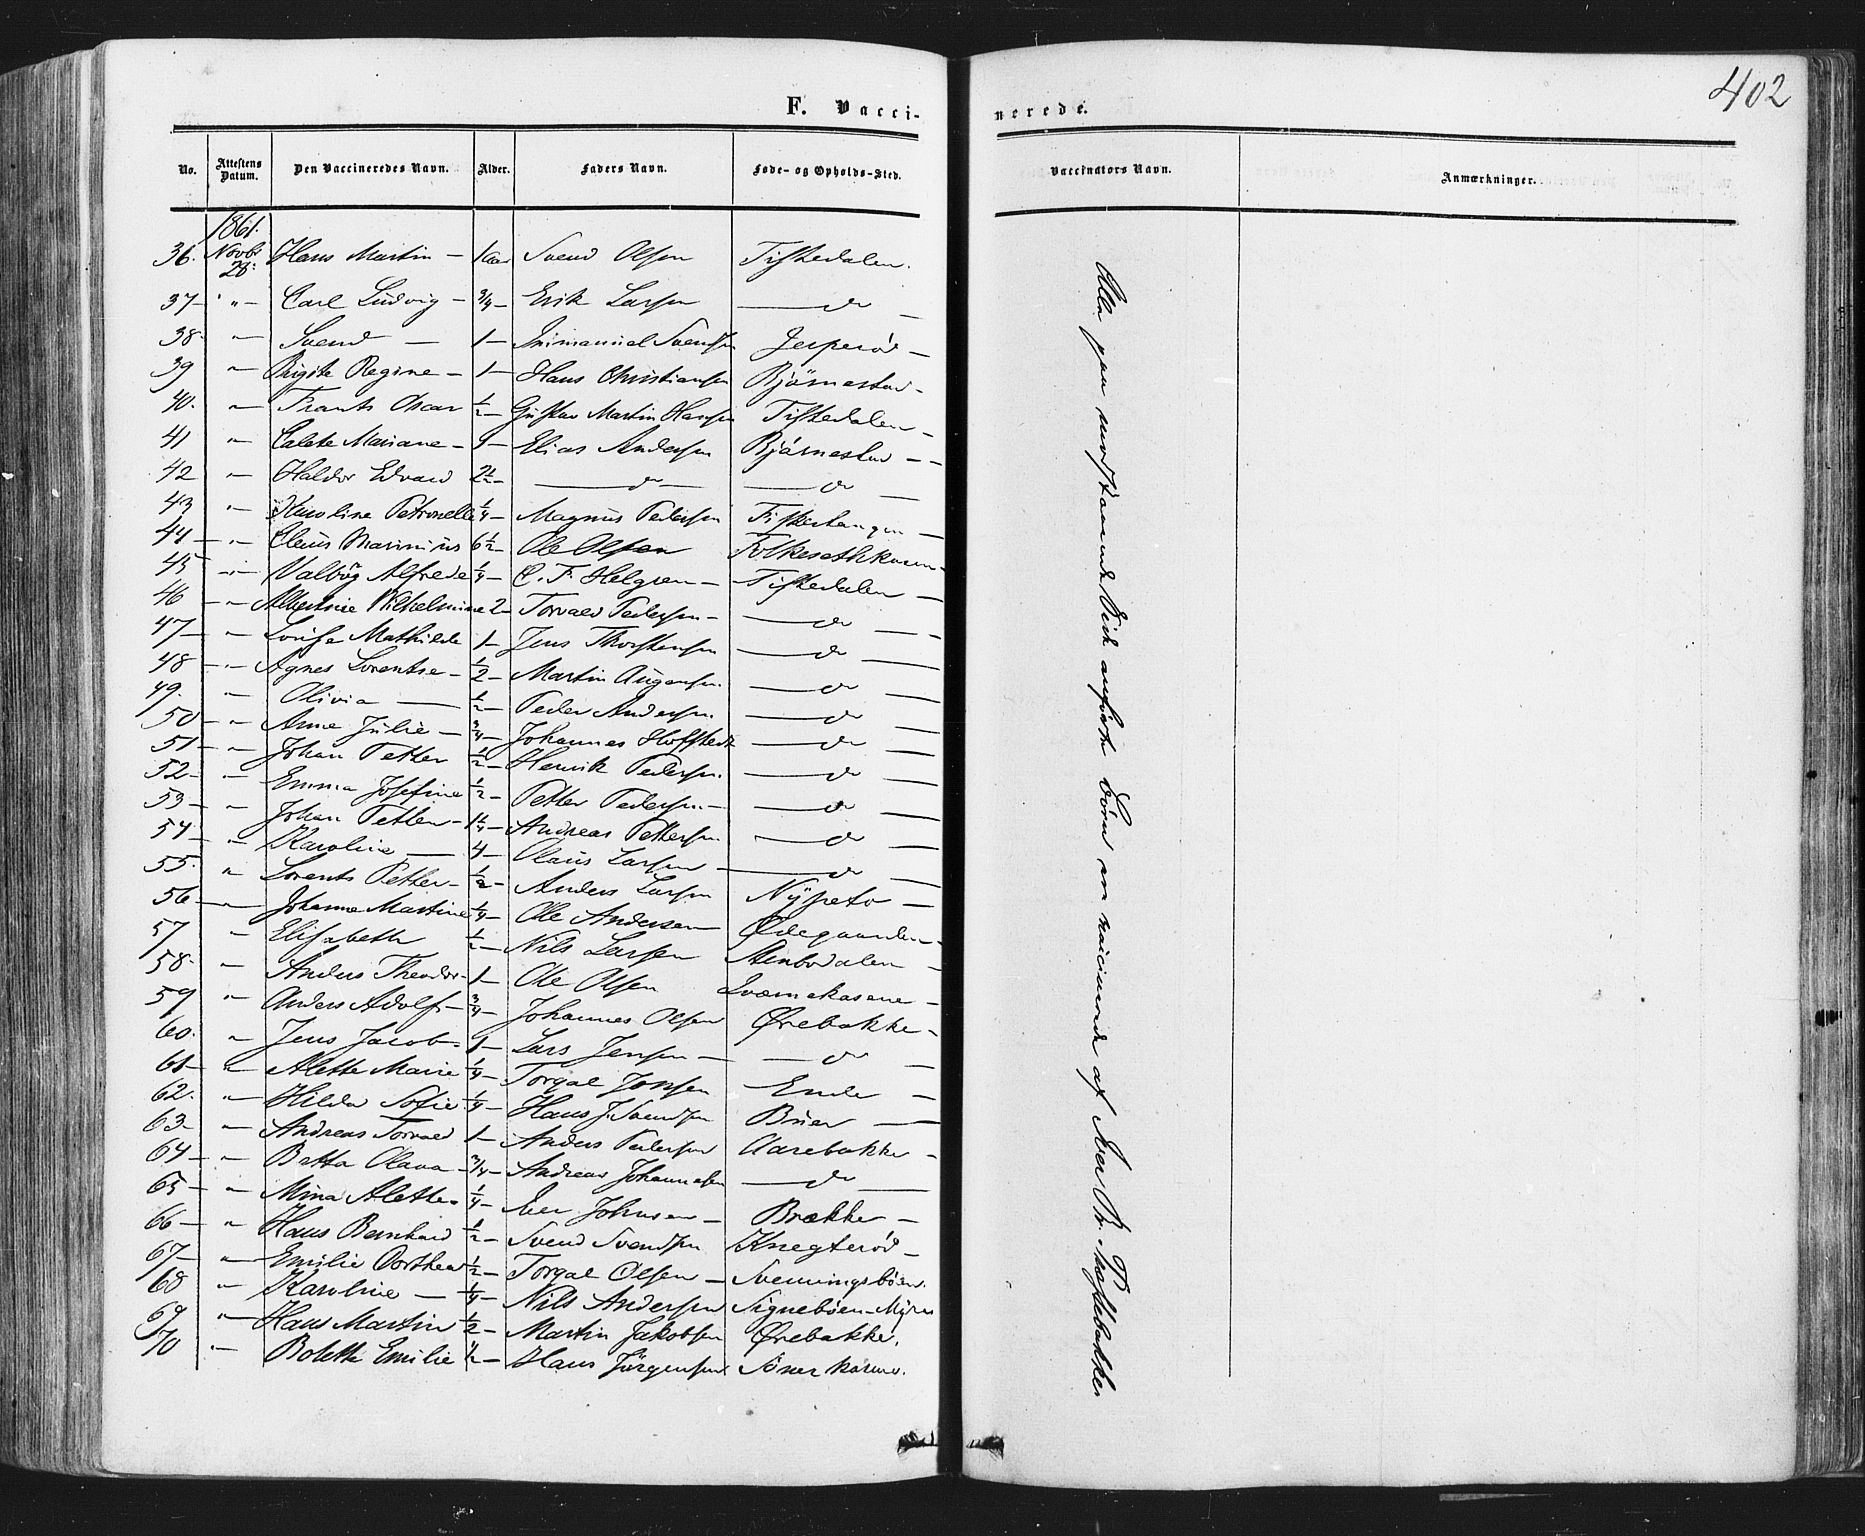 402
F. Vacci-
nerede.
No. Attestens Datum. Den Vaccineredes Navn. Alder. Faders Navn. Føde- og Opholds-Sted.
Vaccinators Navn. Anmærkninger.
1861.
36. Novbr 28: Hans Martin - 1 aar Svend Olsen Tistedalen.
37 - " - Carl Ludvig - 3/4 - Erik Larsen do -
38. " Svend - 1 - Immanuel Svendsen Jesperød -
39 " Birgite Regine - 1 - Hans Christiansen Bjørnestad -
40. " Frants Oscar 1/2 - Gustav Martin Hansen Tistedalen -
41 " Calete Mariane - 9 - Elias Andersen Bjørnestad - -
42 " Haldor Edvard 2 1/2 - do do -
43 " Karoline Petronelle 1/4 - Magnus Pedersen -
44 - " Claus Marinius 6 1/2 - Ole Olsen
45 - " - Valbôg Alfrede 1/4 - C. F. Helgren - Tistedalen -
46 - " Albertine Wilhelmine 2 - Torvald Pedersen - do -
47 - " Lovise Mathilde 1 - Jens Thorstensen do -
48 - " Agnes Lorentse - 1/2 - Martin Augensen do -
49. " Olivia - 1/2 - Peder Andersen. do -
50 - " Anne Julie - 3/4 - Johannes Hoffstedt do -
51 - " Johan Petter 1/2 - Henrik Pedersen. do -
52 - " Emma Josefine 1/2 - Petter Pedersen - do -
53 - " Johan Petter - 1 1/4 - Andreas Pettersen do -
54 - " Karoline - 4 - Olaus Larsen - do -
55. " Lorents Petter - 1/2 - Anders Larsen -
56 - " Johanne Martine 1/4 - Ole Andersen Ødegaarden -
57 " Elisabeth 1/2 - Nils Larsen Stenbodalen -
58. " Anders Theodor - 1 - Ole Olsen -
59 " Anders Adolf - 3/4 - Johannes Olsen Ørebakke -
60. " Jens Jacob - 9 - Lars Jensen - do -
61 - " Alette Marie 1/4 - Torgal Jonsen Ende -
62. " Hilda Sofie 1/4 - Hans J. Svendsen Buer -
63 - " Andreas Torvald 1 - Anders Pedersen Aarebakke -
64 - " Betta Olava - 3/4 - Andreas Johannesen do -
65 - " Mina Alette - 1/4 - Iver Johnsen - Brække -
66 - " Hans Bernhard 1/2 - Svend Svendsen Knegterød -
67 - " Emilie Dorthea 1/2 - Torgal Olsen - Svenningsbøen.
68 " Karoline - 1/4 - Nils Andersen Signebøen-Myren
69 " Hans Martin 1/2 - Martin Jakobsen Ørebakke.
70 " Bolette Emilie 1/2 - Hans Jørgensen
Alle paa modstaaende Side anførte Børn ere vaccinerede af Iver Br.